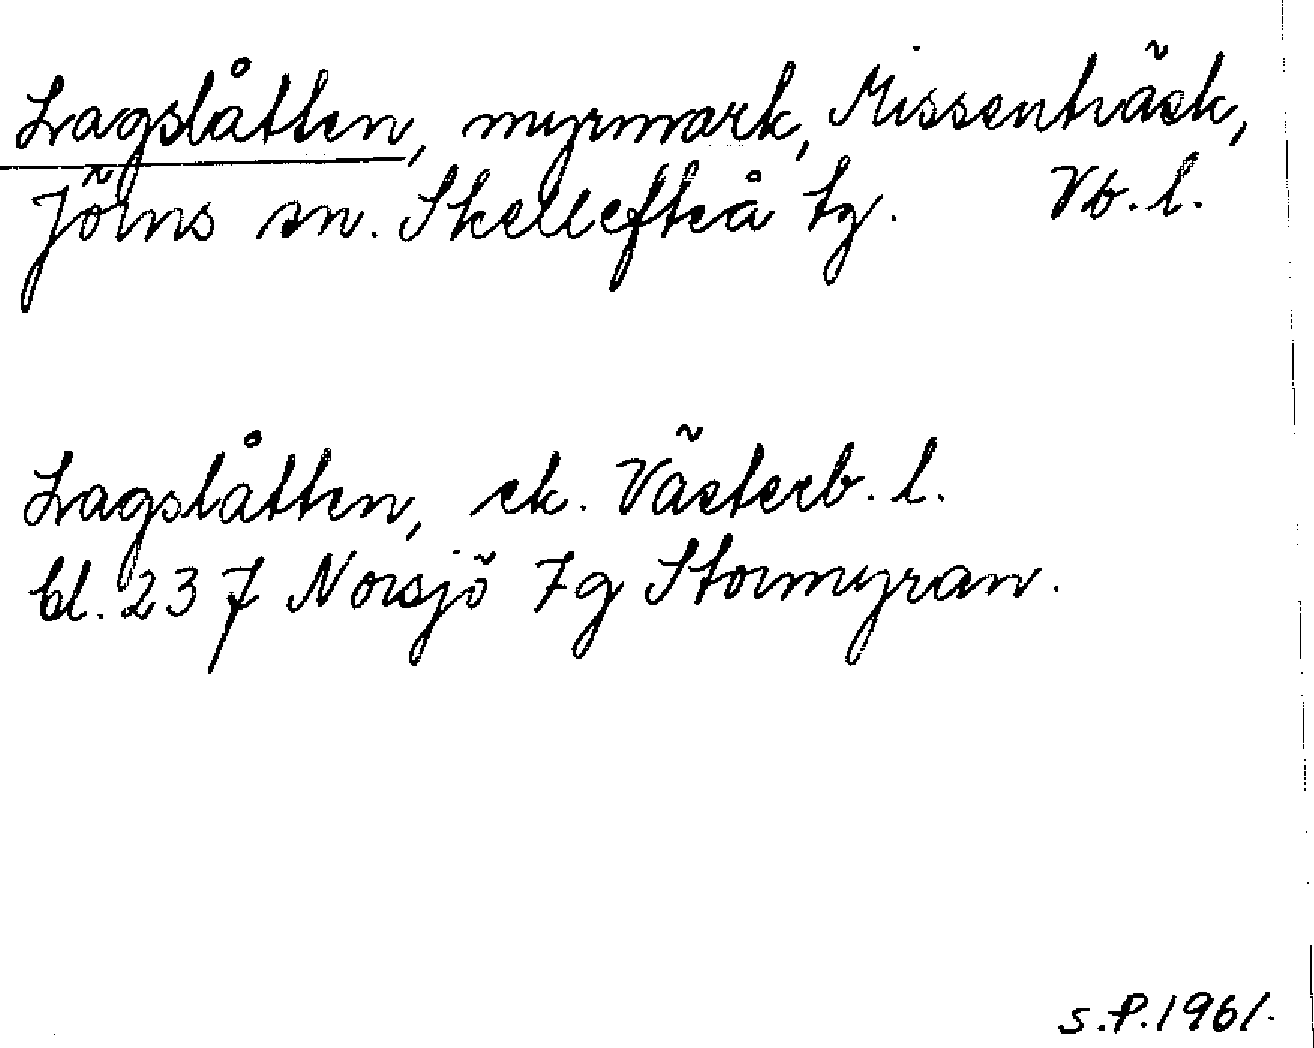 Lagslåtten, myrmark, Missenträsk,
Jörns sn. Skellefteå tg. Vb. l.
Lagslåtten, ek. Västerb. l.
bl. 237 Norsjö 7g Stormyran.
S.P. 1961.